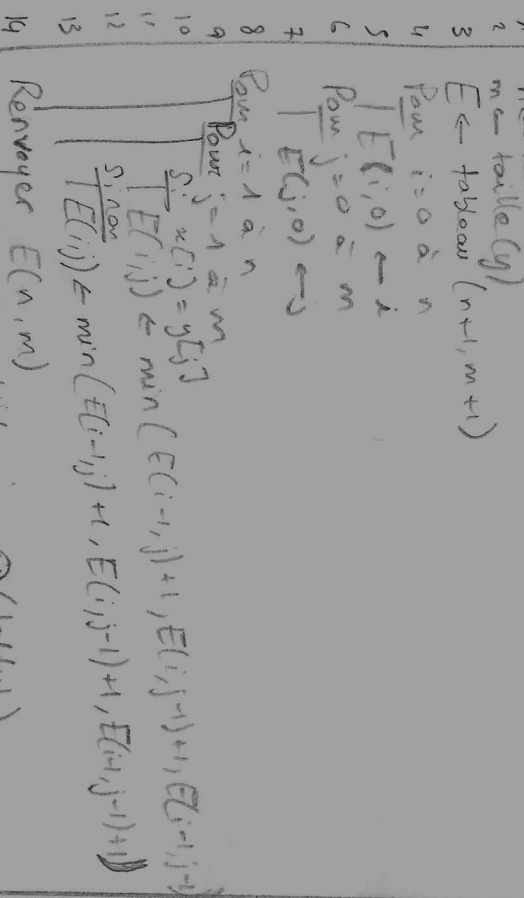 2 m ← taille(y)
3 E ← tableau (n+1, m+1)
4 Pour i=0 à n
5 E(i,0) ← i
6 Pour j=0 à m
7 E(j,0) ← j
8 Pour i=1 à n
9 Pour j=1 à m
10 Si x[i] = y[j]
11 E(i,j) ← min(E(i-1,j)+1, E(i,j-1)+1, E(i-1,j-1)
12 Sinon
13 E(i,j) ← min(E(i-1,j)+1, E(i,j-1)+1, E(i-1,j-1)+1)
14 Renvoyer E(n,m)